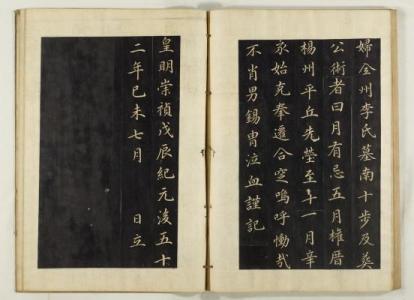 婦全州李氏墓南十步及葬
公術者曰月有忌五月権厝
楊州平丘先塋至十一月峯
永始克奉遷合窆嗚呼慟哉
不肖男錫胄泣血謹記
皇明崇禎戊辰紀元後五十
二年己未七月 日立